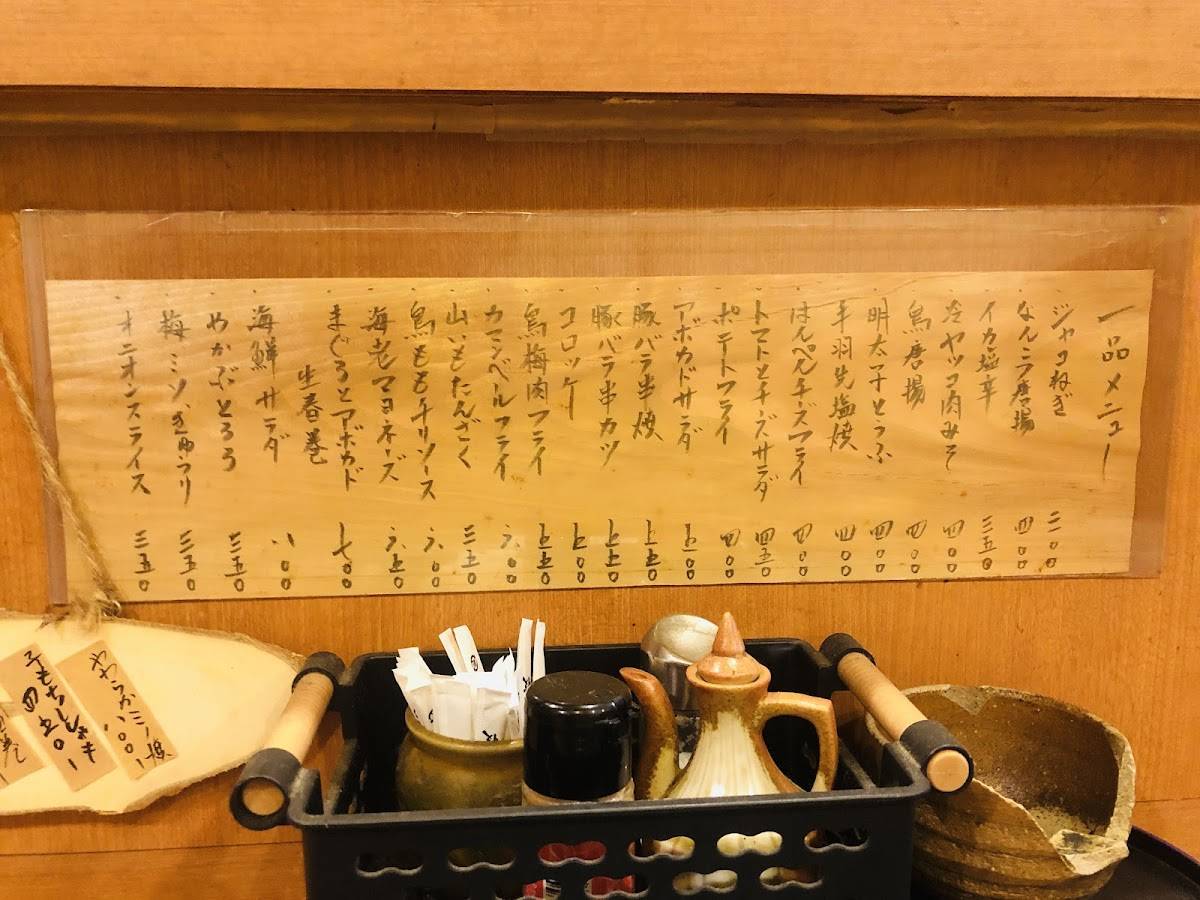 一品メニュー
ジャコねぎ 二〇〇
なんこつ唐揚 四〇〇
イカ塩辛 三五〇
冷ヤッコ肉みそ 四〇〇
鳥唐揚 四〇〇
明太子とうふ 四〇〇
手羽先塩焼 四〇〇
はんぺんチーズフライ 四〇〇
トマトとチーズサラダ 四五〇
ポテートフライ 四〇〇
アボカドサラダ 五〇〇
豚バラ串焼 五五〇
豚バラ串カツ 五五〇
コロッケー 五〇〇
鳥梅肉フライ 五五〇
カマンベールフライ 六〇〇
山いもたんざく 三五〇
鳥ももチリソース 六〇〇
海老マヨネーズ 六五〇
まぐろとアボカド
生春巻 七〇〇
海鮮サラダ 八〇〇
やかぶとろろ 三五〇
梅ミソきゅうり 三五〇
オニオンスライス 三五〇
やわらかミノ焼
子もちししゃも